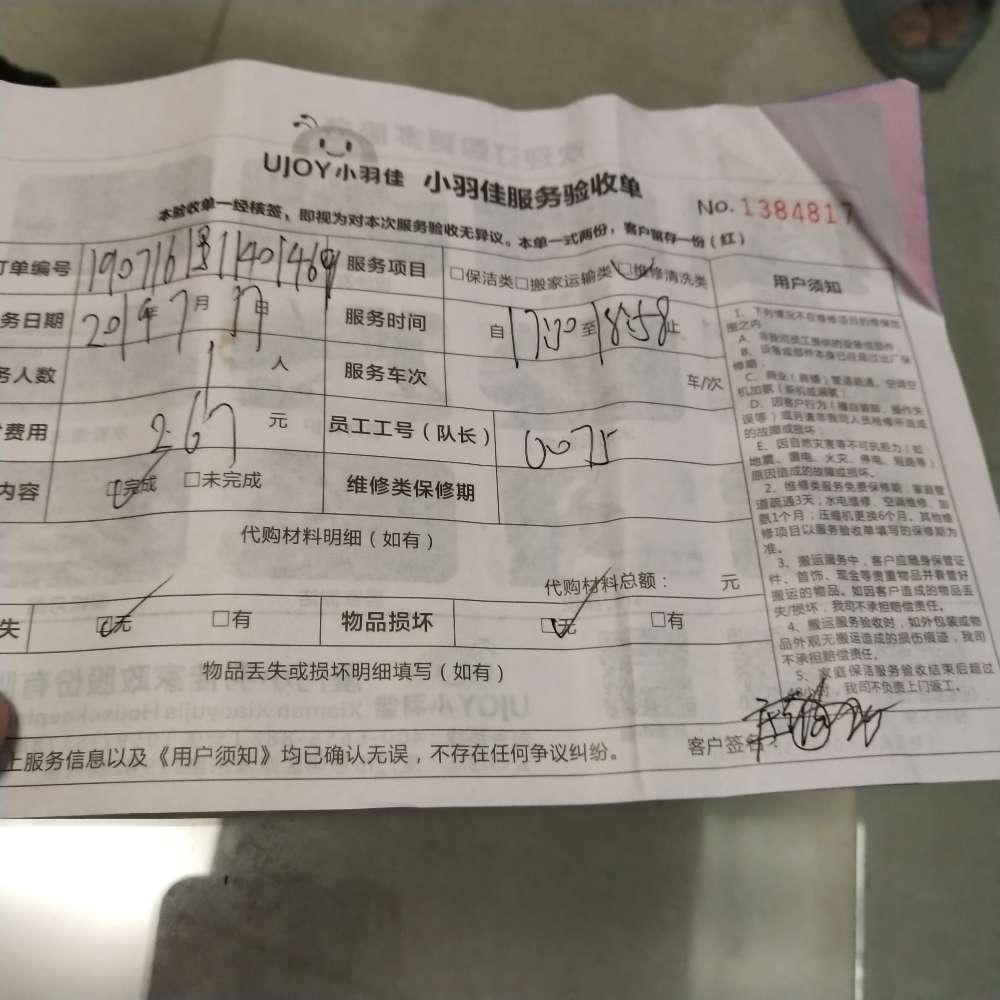 UJOY小羽佳 小羽佳服务验收单
No. 1384817
本验收单一经核签，即视为对本次服务验收无异议。本单一式两份，客户留存一份（红）
订单编号 服务项目 □保洁类□搬家运输类□维修清洗类
务日期 201 年 7 月 服务时间 自 17:30 至 18:58 止
务人数 1 人 服务车次 车/次
费用 267 元 员工工号（队长） 0075
内容 □完成 □未完成 维修类保修期
代购材料明细（如有）
代购材料总额： 元
失 □无 □有 物品损坏 □无 □有
物品丢失或损坏明细填写（如有）
上服务信息以及《用户须知》均已确认无误，不存在任何争议纠纷。
客户签名：
用户须知
1、下列情况不在维修项目的维保范
围之内
A、非我司员工提供的设备或部件；
B、设备或部件本身已经超过出厂保
修期；
C、商业（商铺）管道疏通、空调空
机加氨（装机或漏氨）
D、因客户行为（擅自装卸、操作失
误等）或另请非我司人员检修所造成
的故障或损坏；
E、因自然灾害等不可抗拒力（如
地震、雷电、火灾、停电、短路等）
原因造成的故障或损坏。
2、维修类服务免费保修期：家庭管
道疏通3天；水电维修、空调维修、加
氨1个月；压缩机更换6个月。其他维
修项目以服务验收单填写的保修期为
准。
3、搬运服务中，客户应随身保管证
件、首饰、现金等贵重物品并看管好
搬运的物品。如因客户造成的物品丢
失/损坏，我司不承担赔偿责任。
4、搬运服务验收时，如外包装或物
品外观无搬运造成的损伤痕迹，我司
不承担赔偿责任。
5、家庭保洁服务验收结束后超过
48小时，我司不负责上门返工。